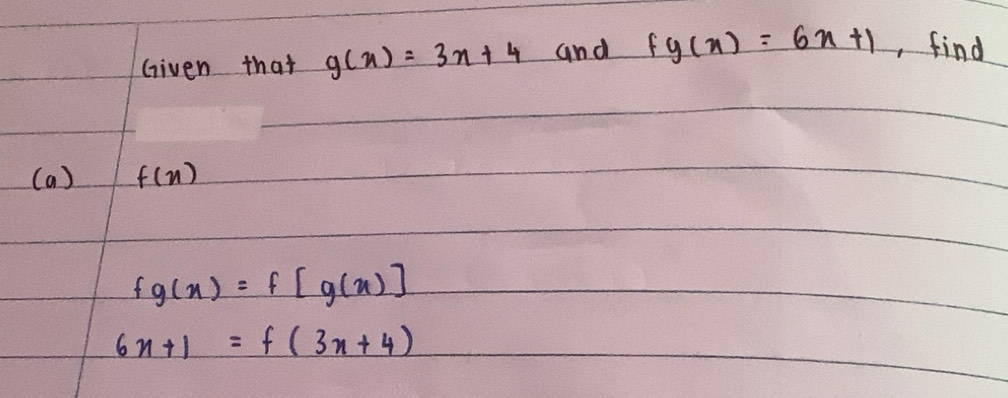 Given that g(x) = 3x + 4 and fg(x) = 6x + 1, find
(a) f(x)
fg(x) = f [g(x)]
6x + 1 = f (3x + 4)